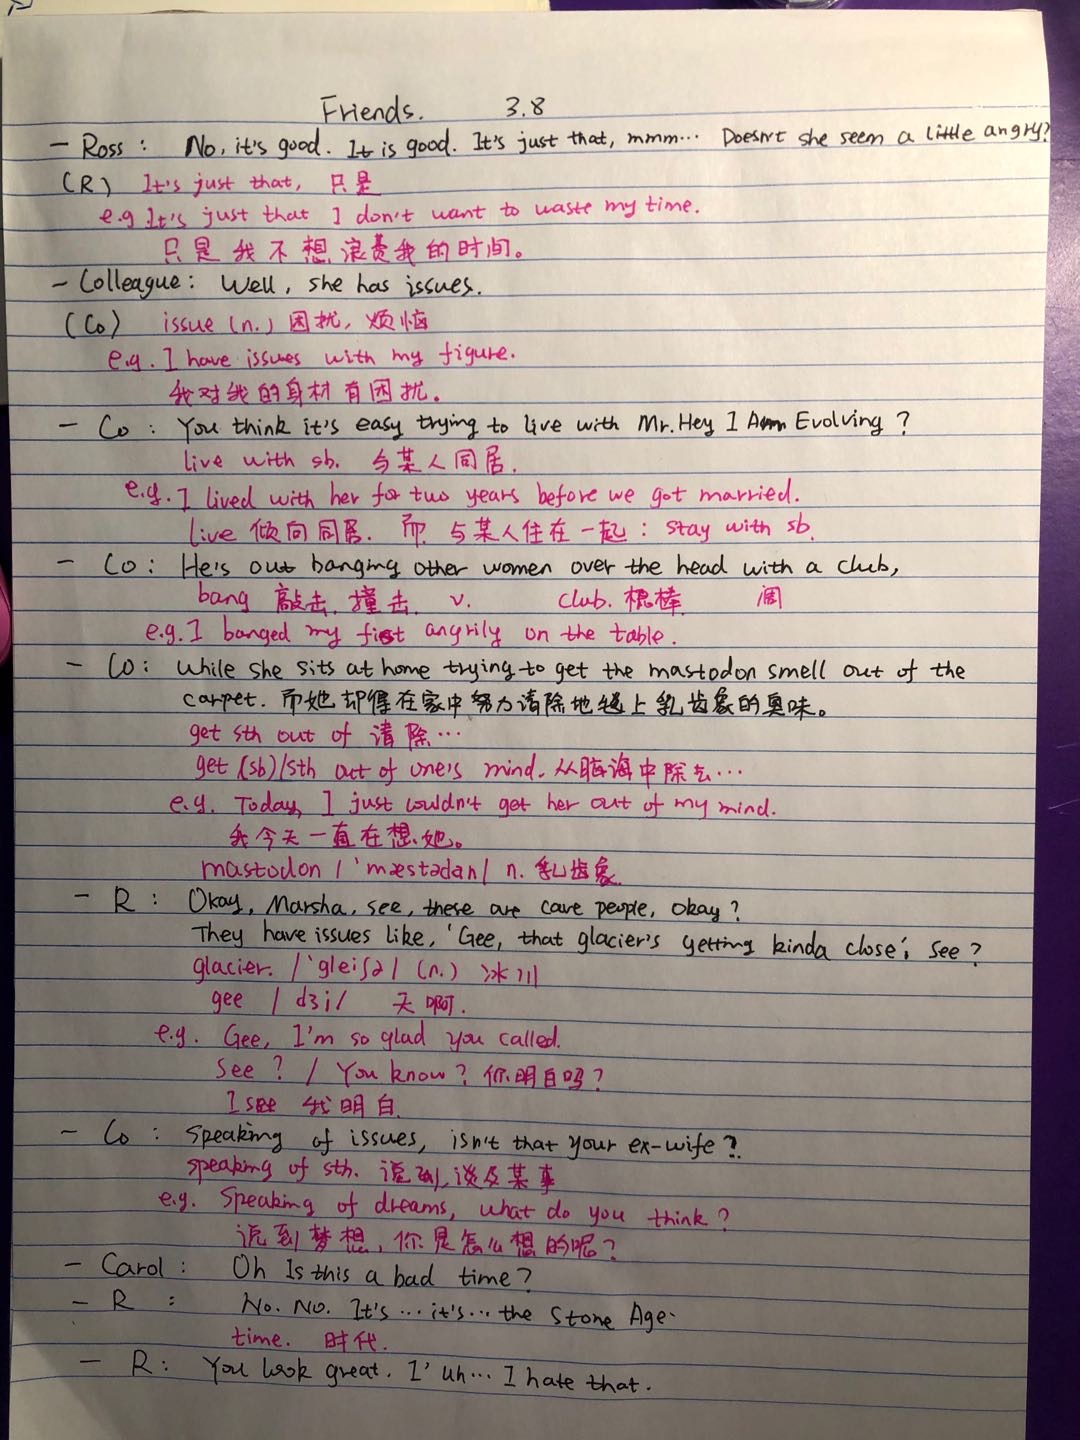 Friends. 3.8
- Ross : No, it's good. It is good. It's just that, mmm... Doesn't she seem a little angry?
(R) It's just that, 只是
e.g It's just that I don't want to waste my time.
只是我不想浪费我的时间。
- Colleague : Well, she has issues.
(Co) issue (n.) 困扰, 烦恼
e.g. I have issues with my figure.
我对我的身材有困扰。
- Co : You think it's easy trying to live with Mr. Hey I Am Evolving ?
live with sb. 与某人同居.
e.g. I lived with her for two years before we got married.
live 倾向同居. 而 与某人住在一起 : stay with sb.
- Co : He's out banging other women over the head with a club,
bang 敲击, 撞击. v. club. 棍棒
e.g. I banged my fist angrily on the table.
- Co : while she sits at home trying to get the mastodon smell out of the
carpet. 而她却得在家中努力清除地毯上乳齿象的臭味。
get sth out of 清除...
get (sb)/sth out of one's mind. 从脑海中除去...
e.g. Today, I just couldn't get her out of my mind.
我今天一直在想她。
mastodon /'mæstədan/ n. 乳齿象
- R : Okay, Marsha, see, these are cave people, okay ?
They have issues like, 'Gee, that glacier's getting kinda close', see ?
glacier. /'gleiʃə/ (n.) 冰川
gee /dʒi/ 天啊.
e.g. Gee, I'm so glad you called.
See ? / You know ? 你明白吗?
I see 我明白.
- Co : Speaking of issues, isn't that your ex-wife ?
speaking of sth. 说到, 谈及某事
e.g. Speaking of dreams, what do you think ?
说到梦想, 你是怎么想的呢?
- Carol : Oh Is this a bad time ?
- R : No. No. It's ... it's ... the Stone Age.
time. 时代.
- R : You look great. I' uh... I hate that.